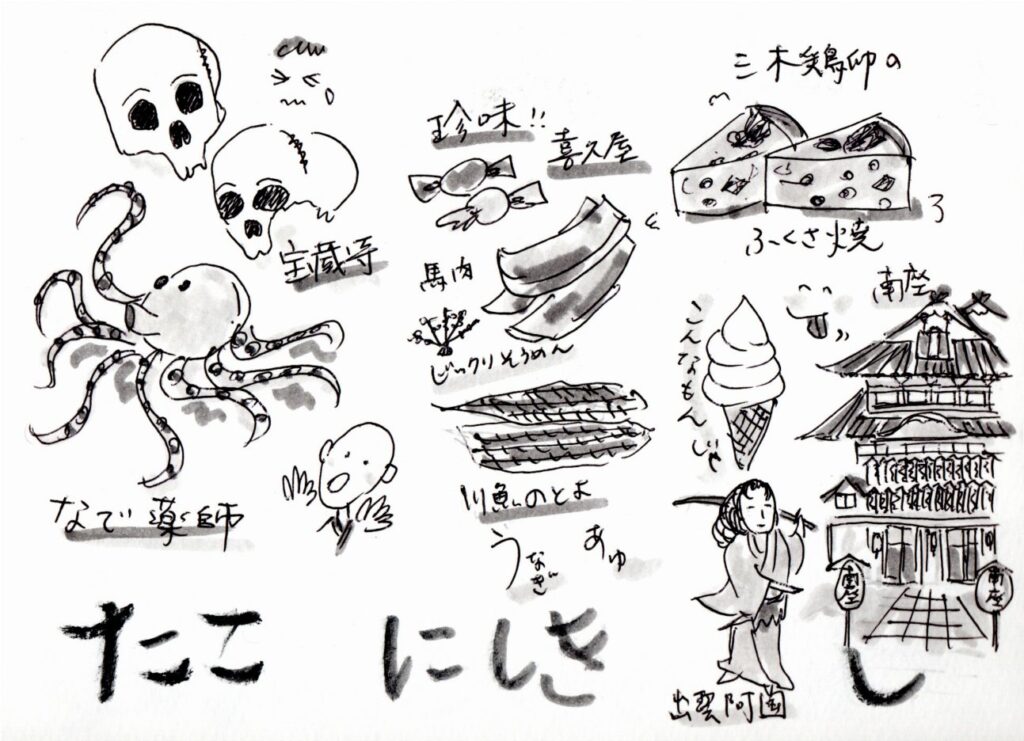 宝蔵寺
なで薬師
たこ
珍味!!
喜久屋
馬肉
びっクリそうめん
川魚のとよ
うなぎ
あゆ
にしき
三木鶏卵の
ふくさ焼
こんなもんじゃ
南座
南座
南座
出雲阿国
し